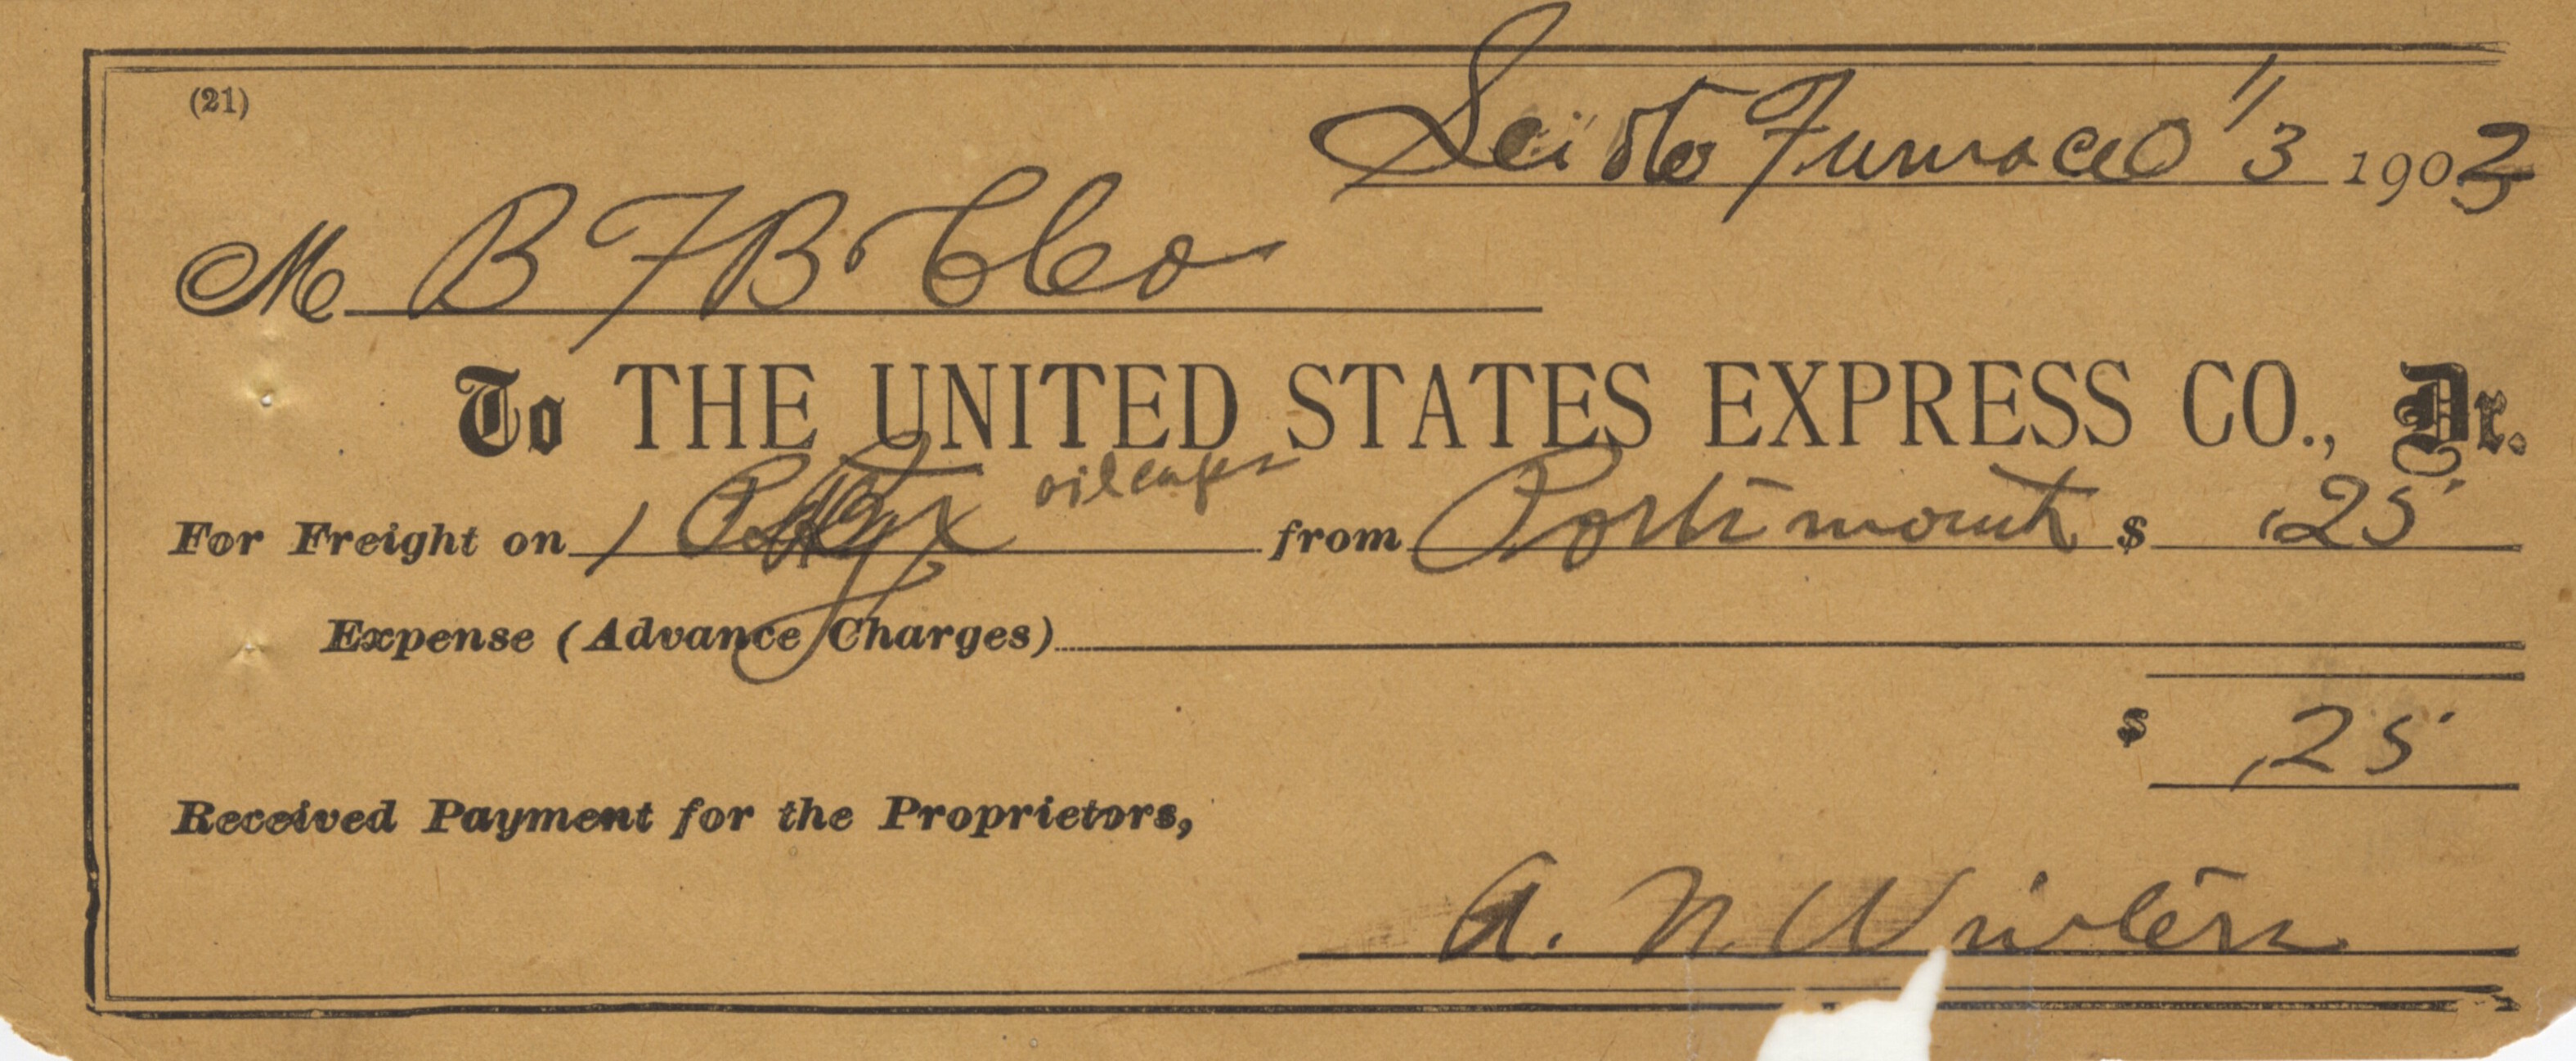 (21)
Scioto Furnace O 1/3 1903
M B F B & Co
To THE UNITED STATES EXPRESS CO., Dr.
For Freight on 1 oil cups from Portsmouth $ .25
Expense (Advance Charges)
$ .25
Received Payment for the Proprietors,
A. N. Winters